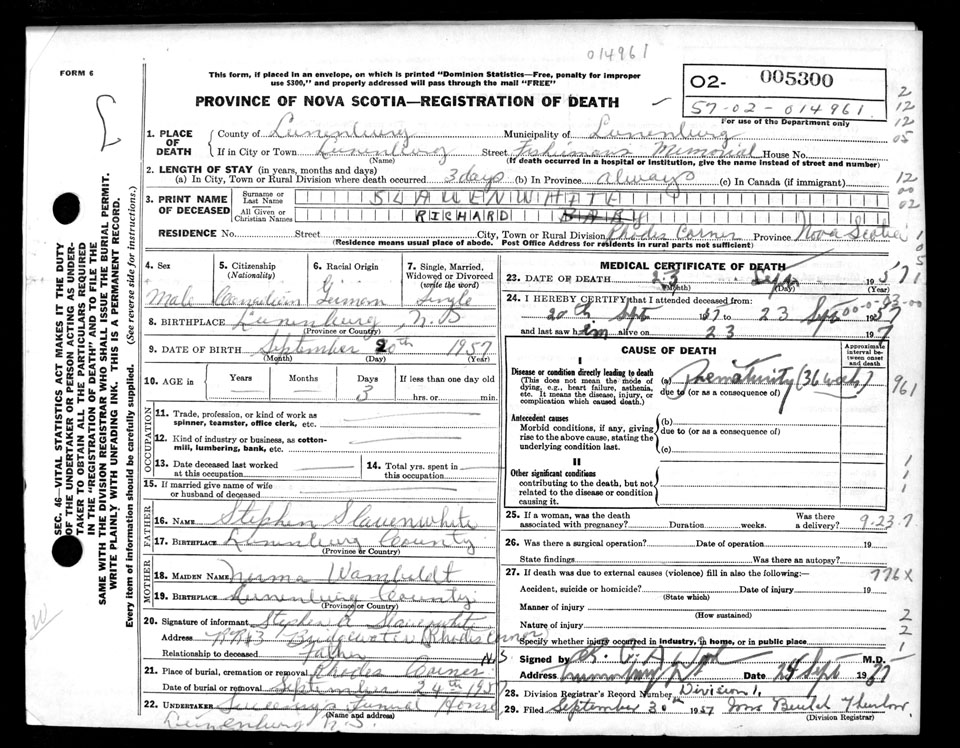 014961
FORM 6
This form, if placed in an envelope, on which is printed "Dominion Statistics—Free, penalty for improper
use $300," and properly addressed will pass through the mail "FREE"
PROVINCE OF NOVA SCOTIA—REGISTRATION OF DEATH
O2- 005300
57-02-014961
For use of the Department only
2
12
12
05
1. PLACE OF DEATH
County of Lunenburg Municipality of Lunenburg
If in City or Town Lunenburg Street Fishermans Memorial House No.
(Name) (If death occurred in a hospital or institution, give the name instead of street and number)
2. LENGTH OF STAY (in years, months and days)
(a) In City, Town or Rural Division where death occurred 3 days (b) In Province always (c) In Canada (if immigrant)
12
00
02
3. PRINT NAME OF DECEASED
Surname or Last Name SLAUENWHITE
All Given or Christian Names RICHARD BABY
RESIDENCE No. Street City, Town or Rural Division Rhodes Corner Province Nova Scotia
(Residence means usual place of abode. Post Office Address for residents in rural parts not sufficient)
4. Sex
Male
5. Citizenship
(Nationality)
Canadian
6. Racial Origin
German
7. Single, Married, Widowed or Divorced
(write the word)
Single
8. BIRTHPLACE Lunenburg, N.S.
(Province or Country)
9. DATE OF BIRTH September 20th 1957
(Month) (Day) (Year)
10. AGE in Years Months Days If less than one day old
3 hrs. or min.
OCCUPATION
11. Trade, profession, or kind of work as
spinner, teamster, office clerk, etc.
12. Kind of industry or business, as cotton-
mill, lumbering, bank, etc.
13. Date deceased last worked
at this occupation
14. Total yrs. spent in
this occupation
15. If married give name of wife
or husband of deceased
FATHER
16. NAME Stephen Slauenwhite
17. BIRTHPLACE Lunenburg County
(Province or Country)
MOTHER
18. MAIDEN NAME Norma Wamboldt
19. BIRTHPLACE Lunenburg County
(Province or Country)
20. Signature of informant Stephen A Slauenwhite
Address RR#3 Bridgewater Rhodes Corner
N.S
Relationship to deceased Father
21. Place of burial, cremation or removal Rhodes Corner
Date of burial or removal September 24th 1957
22. UNDERTAKER Funeral Home
(Name and address)
Lunenburg N.S.
MEDICAL CERTIFICATE OF DEATH
23. DATE OF DEATH 23 Sept 1957
(Month) (Day) (Year)
24. I HEREBY CERTIFY that I attended deceased from:
20th Sept 1957 to 23 Sept 1957
and last saw him alive on 23 197
CAUSE OF DEATH
Approximate interval between onset and death
I
Disease or condition directly leading to death
(This does not mean the mode of
dying, e.g., heart failure, asthenia,
etc. It means the disease, injury, or
complication which caused death.)
(a) Prematurity (36 weeks)
due to (or as a consequence of)
961
Antecedent causes
Morbid conditions, if any, giving
rise to the above cause, stating the
underlying condition last.
(b)
due to (or as a consequence of)
(c)
II
Other significant conditions
contributing to the death, but not
related to the disease or condition
causing it.
25. If a woman, was the death
associated with pregnancy? Duration weeks. Was there a delivery?
9-23.7
26. Was there a surgical operation? Date of operation 19
State findings Was there an autopsy?
27. If death was due to external causes (violence) fill in also the following:—
776X
Accident, suicide or homicide? Date of injury 19
(State which)
Manner of injury
(How sustained)
Nature of injury
Specify whether injury occurred in industry, in home, or in public place
Signed by M.D.
Address Date 24 Sept 1957
28. Division Registrar's Record Number Division 1,
29. Filed September 30th 1957
(Division Registrar)
SEC. 46—VITAL STATISTICS ACT MAKES IT THE DUTY
OF THE UNDERTAKER OR PERSON ACTING AS UNDER-
TAKER TO OBTAIN ALL THE PARTICULARS REQUIRED
IN THE "REGISTRATION OF DEATH" AND TO FILE THE
SAME WITH THE DIVISION REGISTRAR WHO SHALL ISSUE THE BURIAL PERMIT.
WRITE PLAINLY WITH UNFADING INK. THIS IS A PERMANENT RECORD.
Every item of information should be carefully supplied. (See reverse side for instructions.)